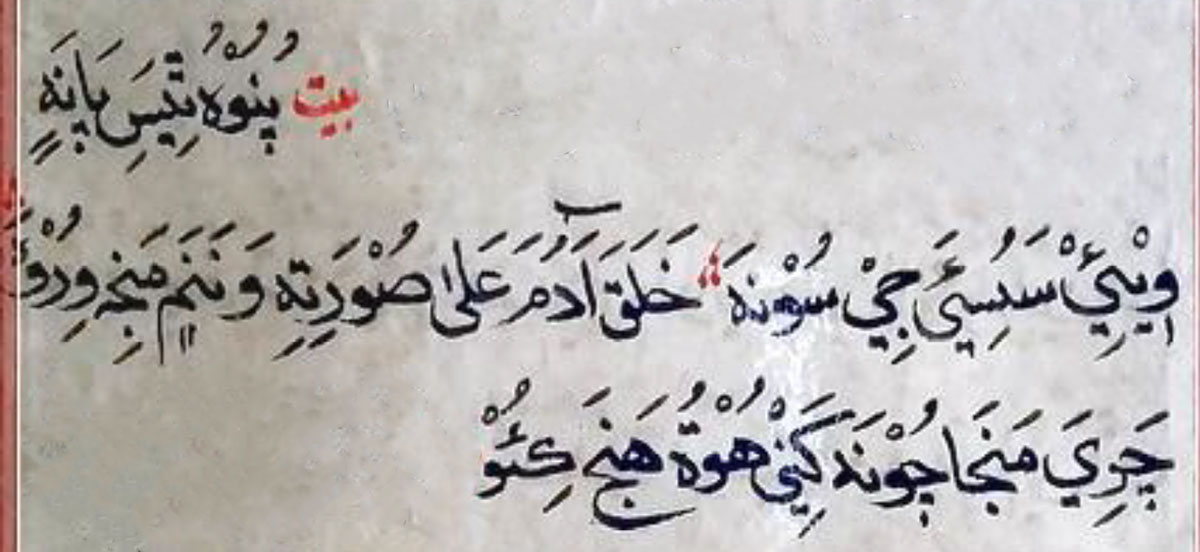 بيت پُنُوْهُ تِيّسَ پَانَہٍ
وِيْيِيْ سَسُيِيَ جِيْ سُوْنہَ خَلَقَ اٰدَمَ عَلىٰ صُوْرَتِهٖ وَنَنَمِ مَنجِهِ وِرُوْ
چَرِيَ مَنجَا چُوْنَہَ كَيِنْ هُوْةُ هَنجَ كِئُوْ